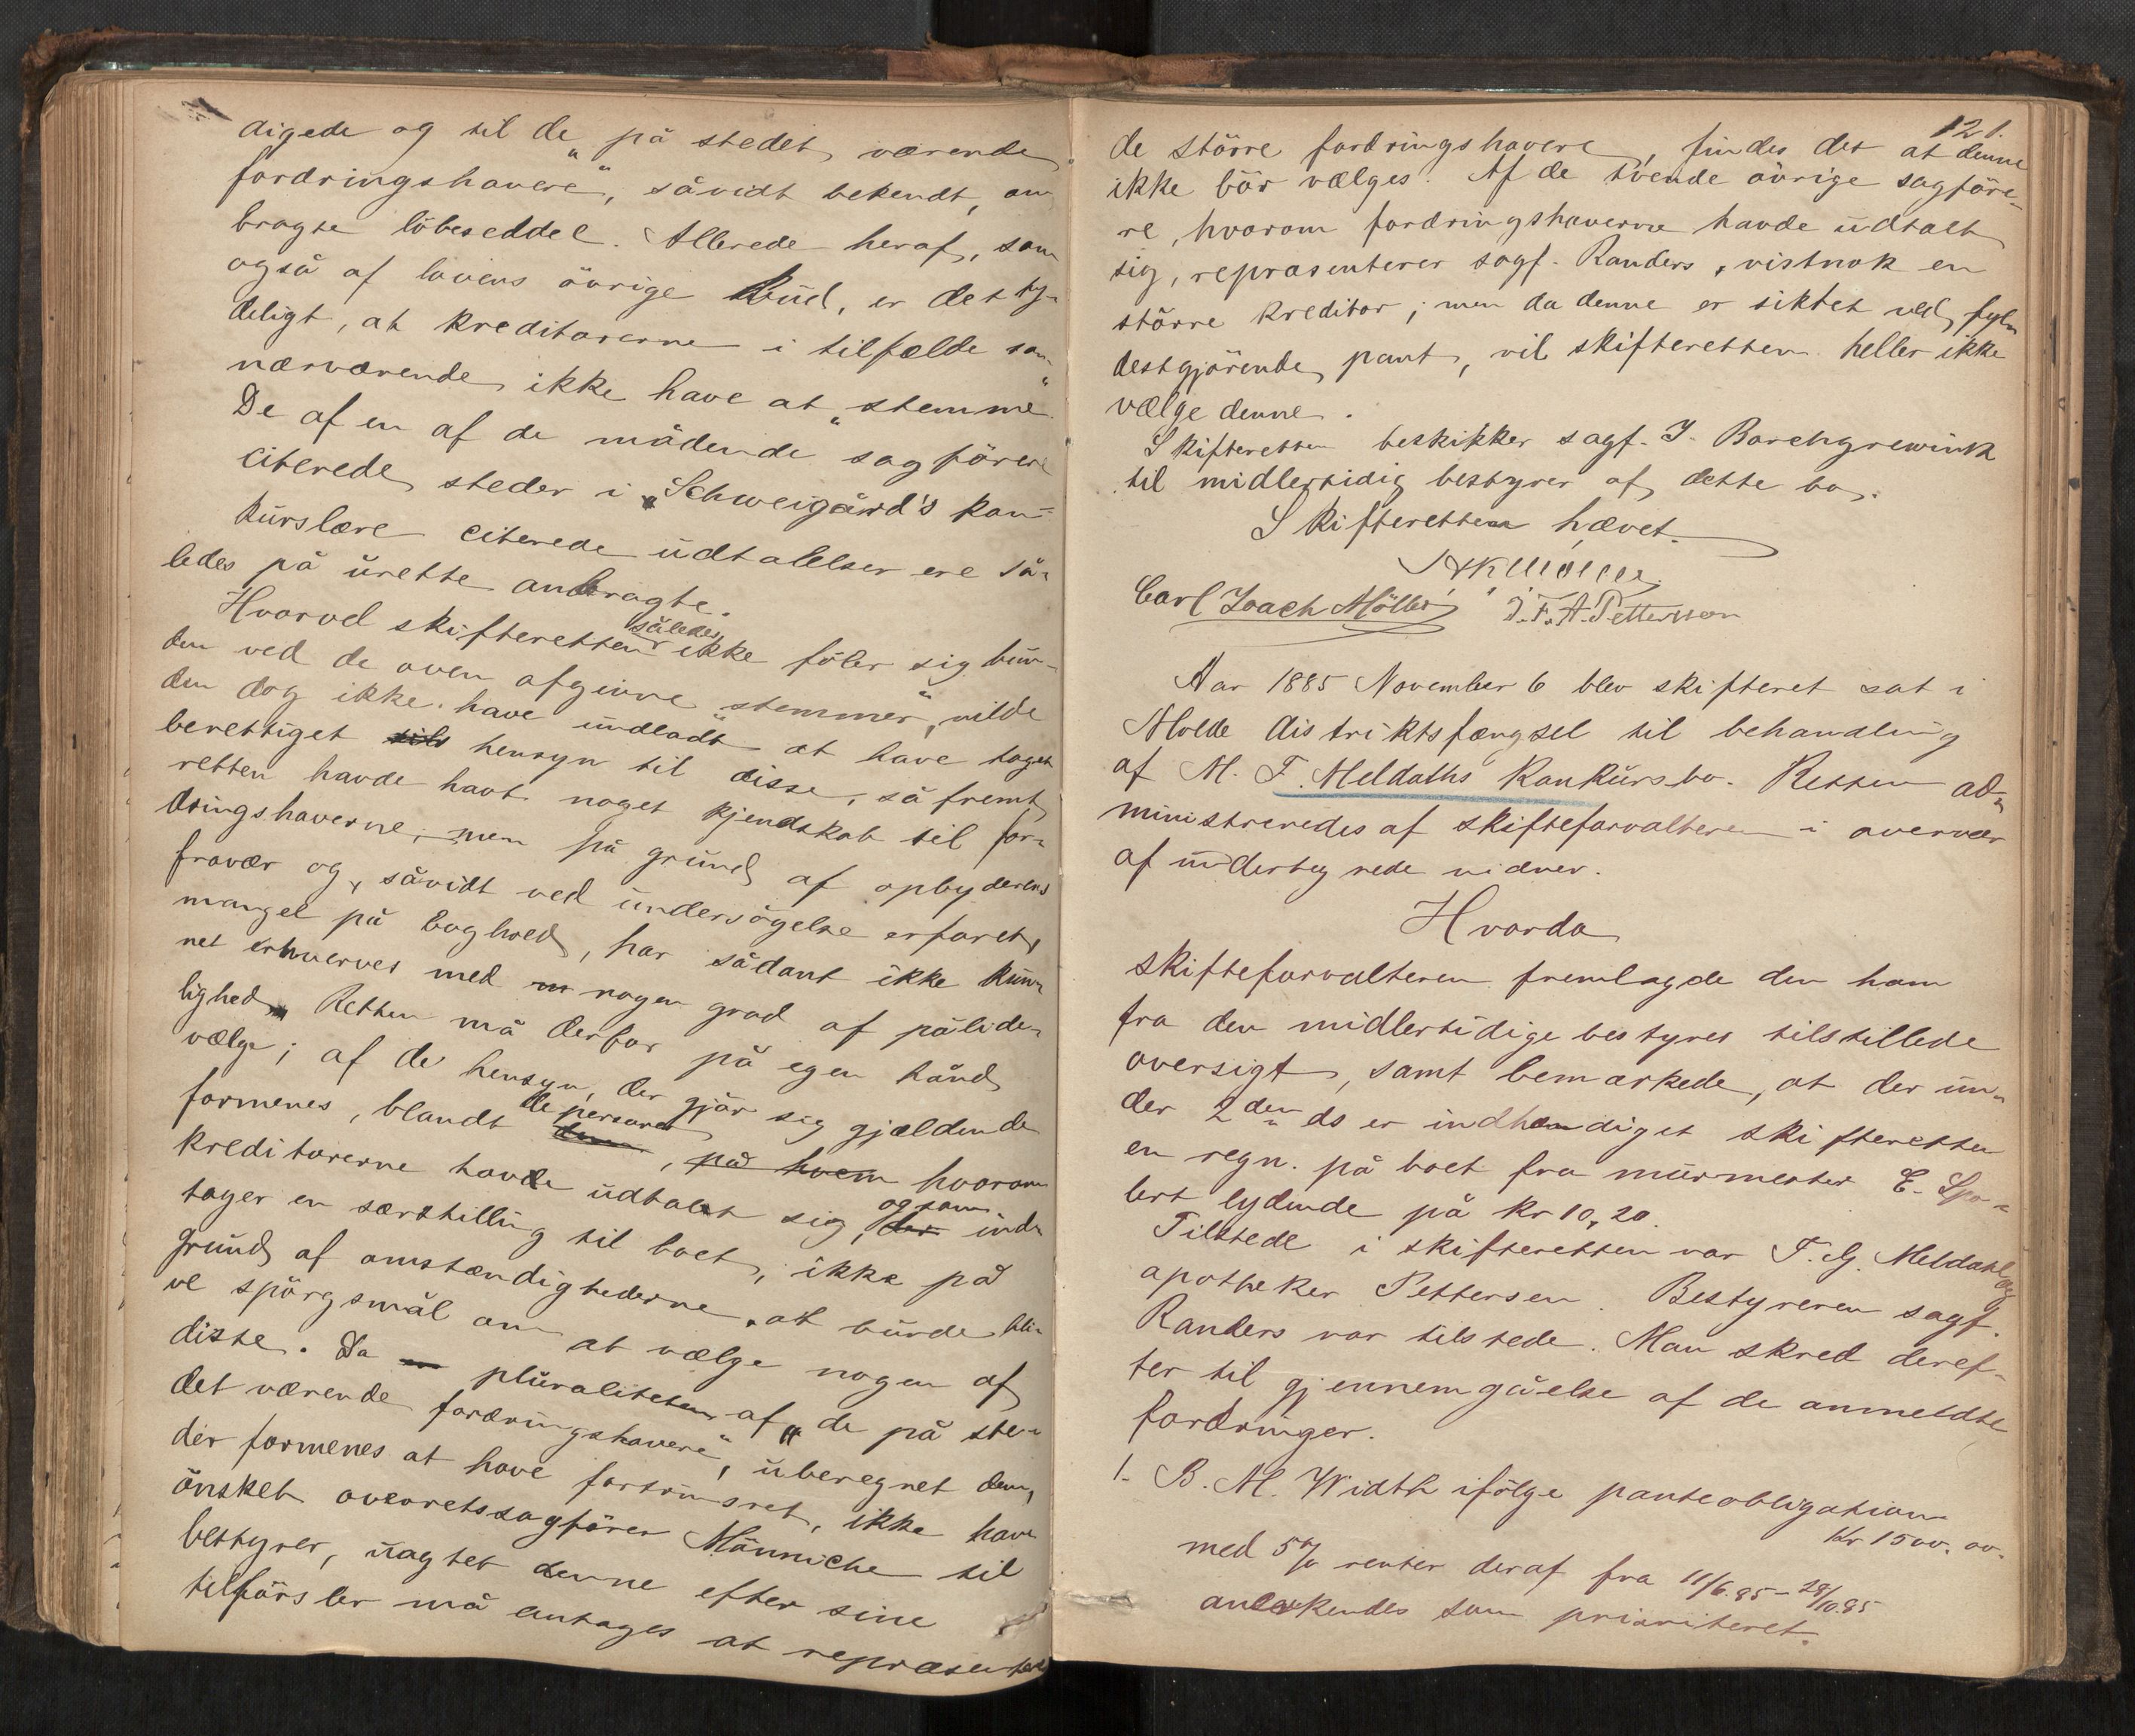 digede og til de „på stedet værende
fordringshavere“, såvidt bekendt, om
bragte löbeseddel. Allerede heraf, som
også af lovens övrige bud, er det ty-
deligt, at kreditorerne i tilfælde som
nærværende ikke have at „stemme“.
De af en af de mödende sagförere
citerede steder i „Schweigård's kon-
kurslære citerede udtalelser ere så-
ledes på urette anbragte.
Hvorvel skifteretten således ikke föler sig bun-
den ved de oven afgivne „stemmer“, vilde
den dog ikke have undladt at have taget
berettiget hensyn til disse, så fremt
retten havde havt noget kjendskab til for-
dringshaverne; men på grund af opbyderens
fravær og, såvidt ved undersögelse erfaret,
mangel på boghold, har sådant ikke kun-
net erhverves med nogen grad af pålide-
lighed. Retten må derfor på egen hånd
vælge; af de hensyn, der gjör sig gjældende
formenes, blandt de personer, på hvem hvorom
kreditorerne havde udtalt sig, og som ind-
tager en særstilling til boet, ikke på
grund af omstændighederne at burde bli-
ve spörgsmål om at vælge nogen af
disse. Da pluraliteten af „de på ste-
det værende fordringshavere“, uberegnet dem,
der formenes at have fortrinsret, ikke have
önsket overretssagförer Mönniche til
bestyrer, uagtet denne efter sine
tilförsler må antages at repræsentere
121.
de större fordringshavere, findes det at denne
ikke bör vælges. Af de tvende övrige sagföre-
re, hvorom fordringshaverne havde udtalt
sig, repræsenterer sagf. Randers, vistnok en
större kreditor; men da denne er siktet ved fyl-
destgjörende pant, vil skifteretten heller ikke
vælge denne.
Skifteretten beskikker sagf. J. Borchgrewink
til midlertidig bestyrer af dette bo.
Skifteretten hævet.
Carl Joach Möller J. F. A. Pettersson
Aar 1885 November 6 blev skifteret sat i
Molde distriktsfængsel til behandling
af M. F. Meldahls konkursbo. Retten ad-
ministreredes af skifteforvalteren i overvær
af undertegnede vidner.
Hvorda
skifteforvalteren fremlagde den ham
fra den midlertidige bestyrer tilstillede
oversigt, samt bemærkede, at der un-
der 2den ds er indhændiget skifteretten
en regn. på boet fra murmester E. Spo-
lert lydende på kr 10,20.
Tilstede i skifteretten var F. G. Meldahl og
apotheker Pettersen. Bestyreren sagf.
Randers var tilstede. Man skred deref-
ter til gjennemgåelse af de anmeldte
fordringer.
1. B. M. Width ifölge panteobligation
kr. 1500.00.
med 5% renter deraf fra 11/6.85 - 28/10.85
anerkendes som prioriteret.